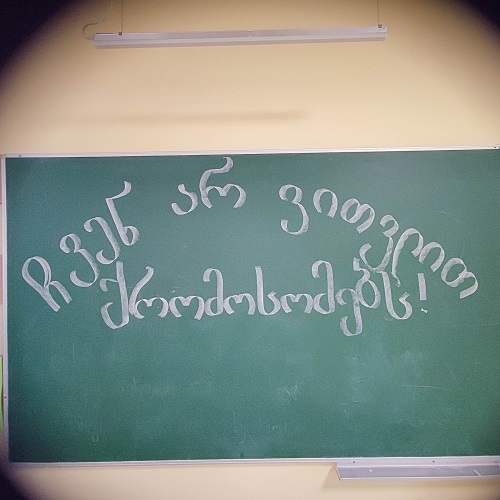 ჩვენ არ ვითვლით
ქრომოსომებს!